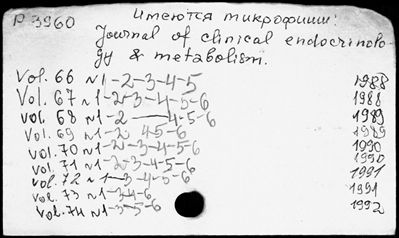 Р 3960 Имеются микрофиши:
Journal of clinical endocrinolo-
gy & metabolism.
Vol. 66 N1-2-3-4-5 1988
Vol. 67 N1-2-3-4-5-6 1988
vol. 68 N1-2 — 4-5-6 1989
Vol. 69 N1-2 4-5-6 1989
vol. 70 N1-2-3-4-5-6 1990
vol. 71 N1-2-3-4-5-6 1990
vol. 72 N1-3-4-5-6 1991
vol. 73 N1-3-4-6 1991
vol. 74 N1-3-5-6 1992